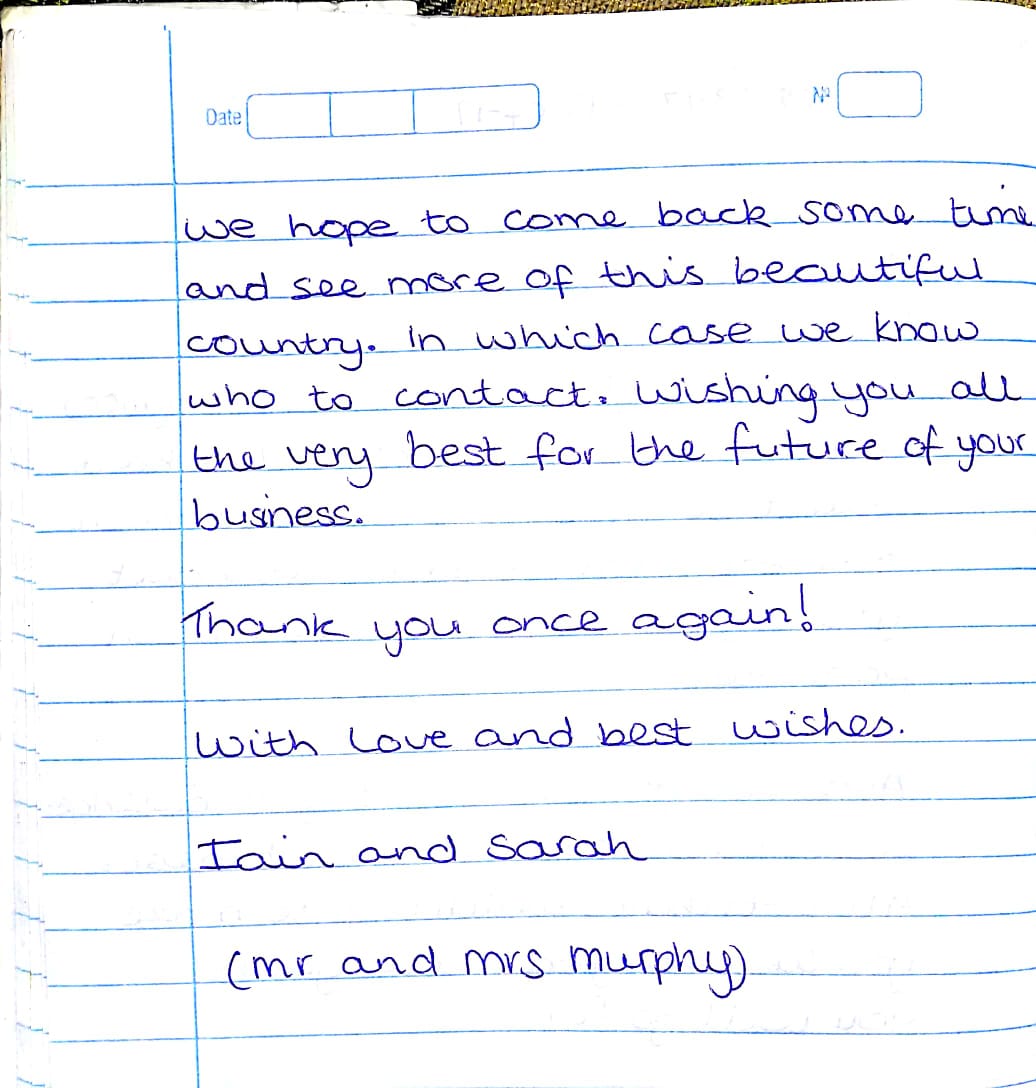 Date
Nº
we hope to come back some time
and see more of this beautiful
country. In which case we know
who to contact. Wishing you all
the very best for the future of your
business.
Thank you once again!
With love and best wishes.
Iain and Sarah
(mr and mrs murphy)